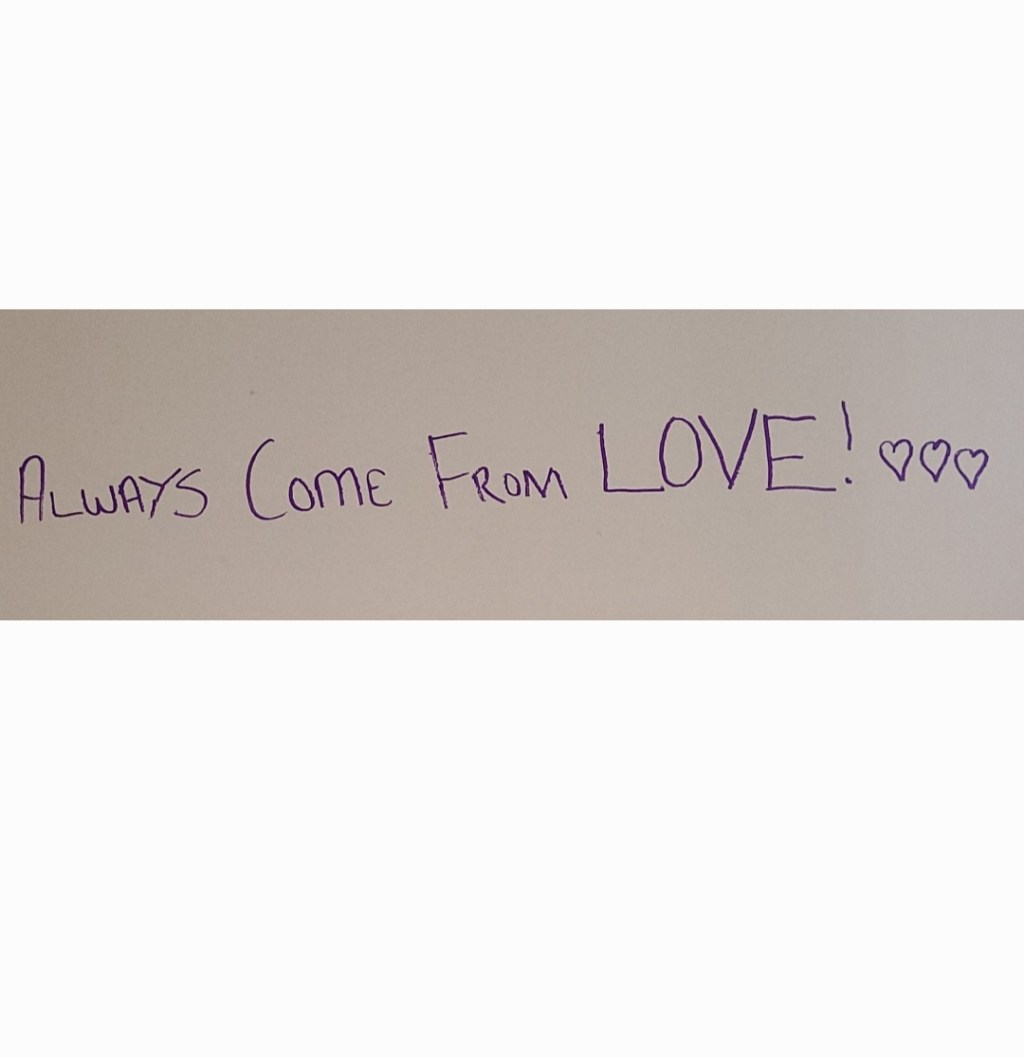 ALWAYS COME FROM LOVE! ♡♡♡